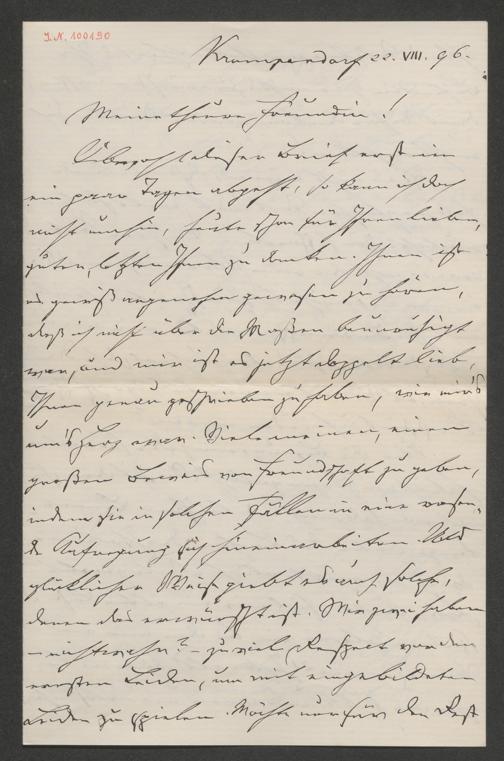 I.N. 100190
Krumpendorf 22. VIII. 96.
Meine theure Freundin!
Obwohl dieser Brief erst in
ein paar Tagen abgeht, so kann ich doch
nicht umhin, heute schon für Ihren lieben,
guten, letzten Ihnen zu danken. Ihnen ist
es gewiß angenehm gewesen zu hören,
daß ich nicht über die Maßen beunruhigt
war, und mir ist es jetzt doppelt lieb,
Ihnen genau geschrieben zu haben, wie mir's
um's Herz war. Viele meinen, einen
großen Beweis von Freundschaft zu geben,
indem sie in solchen Fällen in eine rasen-
de Aufregung sich hineinarbeiten. Und
glücklicher Weise giebt es auch solche,
denen das erwünscht ist. Wir zwei haben
– nicht wahr? – zu viel Respect vor den
ernsten Leiden, um mit eingebildeten
Leiden zu spielen. Möchte nur für den Rest